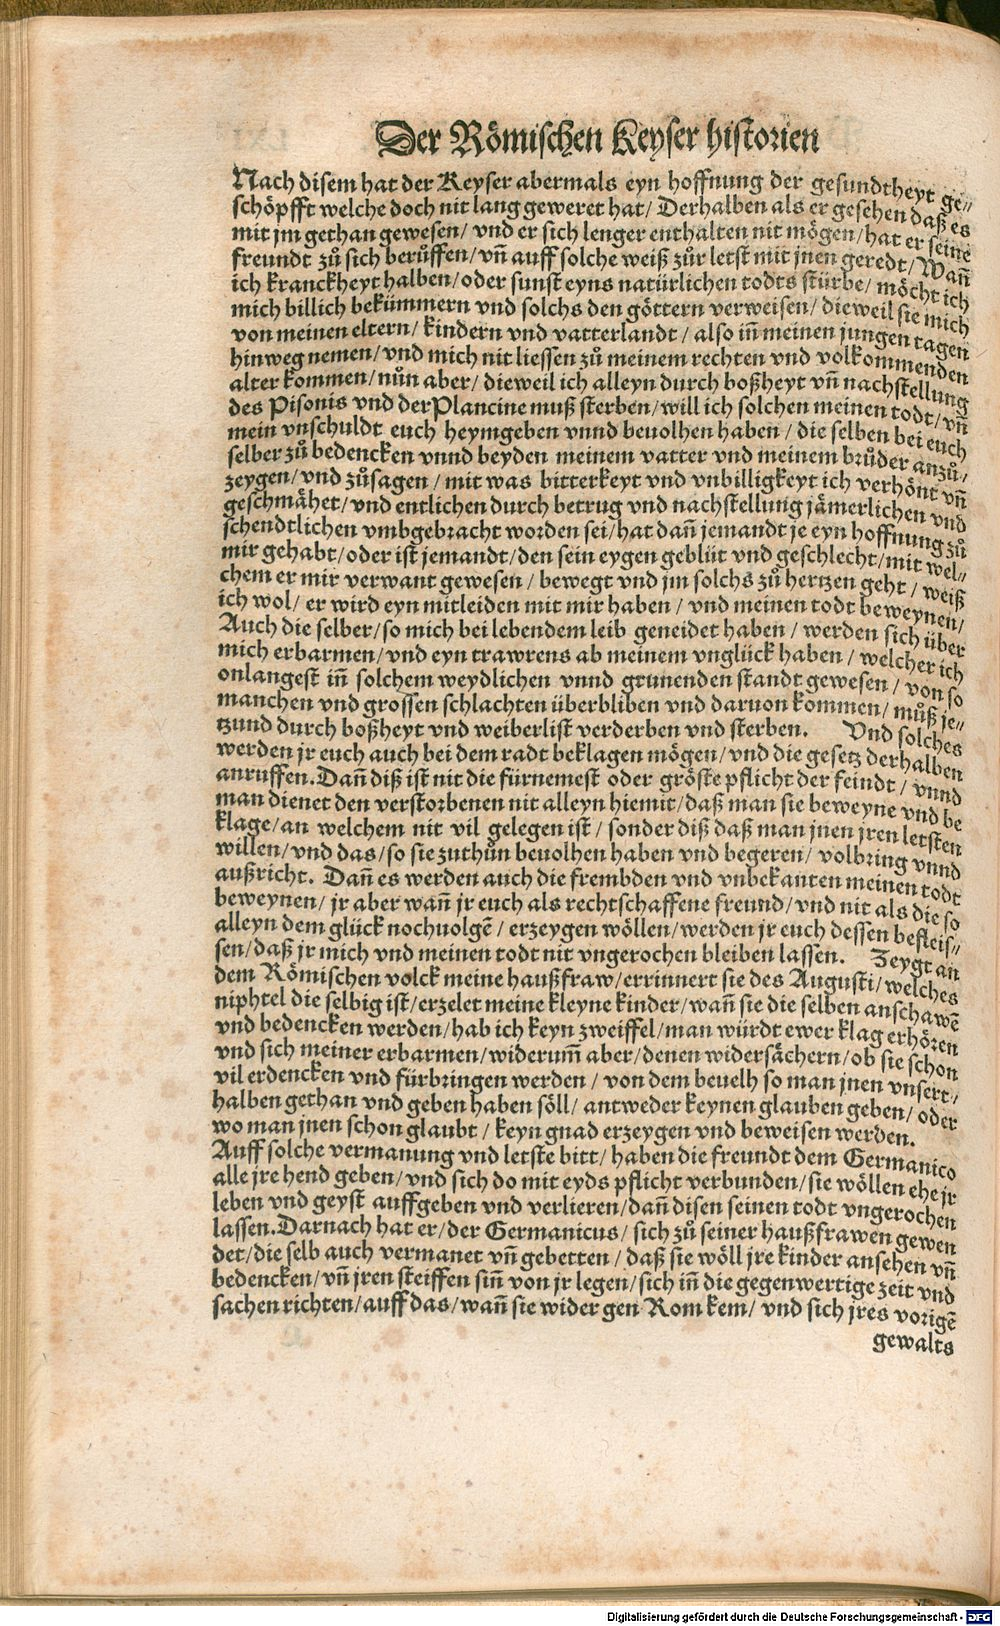 Der Römischen Keyser historien
Nach disem hat der Keyser abermals eyn hoffnung der gesundtheyt ge⸗
schöpfft welche doch nit lang geweret hat/ Derhalben als er gesehen daß es
mit jm gethan gewesen/ vnd er sich lenger enthalten nit mögen/ hat er seine
freundt zů sich berůffen/ vñ auff solche weiß zůr letst mit jnen geredt/ Wañ
ich kranckheyt halben/ oder sunst eyns natürlichen todts stürbe/ möcht ich
mich billich bekümmern vnd solchs den göttern verweisen/ dieweil sie mich
von meinen eltern/ kindern vnd vatterlandt/ also iñ meinen jungen tagen
hinweg nemen/ vnd mich nit liessen zů meinem rechten vnd volkommenden
alter kommen/ nůn aber/ dieweil ich alleyn durch boßheyt vñ nachstellung
des Pisonis vnd der Plancine muß sterben/ will ich solchen meinen todt/ vñ
mein vnschuldt euch heymgeben vnnd beuolhen haben/ die selben bei euch
selber zů bedencken vnnd beyden meinem vatter vnd meinem brůder anzů⸗
zeygen/ vnd zůsagen/ mit was bitterkeyt vnd vnbilligkeyt ich verhönt vñ
geschmähet/ vnd entlichen durch betrug vnd nachstellung jämerlichen vnd
schendtlichen vmbgebracht worden sei/ hat dañ jemandt je eyn hoffnung zů
mir gehabt/ oder ist jemandt/ den sein eygen geblüt vnd geschlecht/ mit wel⸗
chem er mir verwant gewesen/ bewegt vnd jm solchs zů hertzen geht/ weiß
ich wol/ er wird eyn mitleiden mit mir haben/ vnd meinen todt beweynen/
Auch die selber/ so mich bei lebendem leib geneidet haben/ werden sich über
mich erbarmen/ vnd eyn trawrens ab meinem vnglück haben/ welcher ich
onlangest iñ solchem weydlichen vnnd grunenden standt gewesen/ von so
manchen vnd grossen schlachten überbliben vnd daruon kommen/ můß je⸗
tzund durch boßheyt vnd weiberlist verderben vnd sterben. Vnd solches
werden jr euch auch bei dem radt beklagen mögen/ vnd die gesetz derhalben
anruffen. Dañ diß ist nit die fürnemest oder gröste pflicht der feindt/ vnnd
man dienet den verstorbenen nit alleyn hiemit/ daß man sie beweyne vnd be
klage/ an welchem nit vil gelegen ist/ sonder diß daß man jnen jren letsten
willen/ vnd das/ so sie zuthůn beuolhen haben vnd begeren/ volbring vnnd
außricht. Dañ es werden auch die frembden vnd vnbekanten meinen todt
beweynen/ jr aber wañ jr euch als rechtschaffene freund/ vnd nit als die so
alleyn dem glück nochuolgẽ/ erzeygen wöllen/ werden jr euch dessen befleis⸗
sen/ daß jr mich vnd meinen todt nit vngerochen bleiben lassen. Zeygt an
dem Römischen volck meine haußfraw/ errinnert sie des Augusti/ welches
niphtel die selbig ist/ erzelet meine kleyne kinder/ wañ sie die selben anschawẽ
vnd bedencken werden/ hab ich keyn zweiffel/ man würdt ewer klag erhören
vnd sich meiner erbarmen/ widerum̃ aber/ denen widersächern/ ob sie schon
vil erdencken vnd fürbringen werden/ von dem beuelh so man jnen vnsert⸗/
halben gethan vnd geben haben söll/ antweder keynen glauben geben/ oder
wo man jnen schon glaubt/ keyn gnad erzeygen vnd beweisen werden.
Auff solche vermanung vnd letste bitt/ haben die freundt dem Germanico
alle jre hend geben/ vnd sich do mit eyds pflicht verbunden/ sie wöllen ehe jr
leben vnd geyst auffgeben vnd verlieren/ dañ disen seinen todt vngerochen
lassen. Darnach hat er/ der Germanicus/ sich zů seiner haußfrawen gewen
det/ die selb auch vermanet vñ gebetten/ daß sie wöll jre kinder ansehen vñ
bedencken/ vñ jren steiffen siñ von jr legen/ sich iñ die gegenwertige zeit vnd
sachen richten/ auff das/ wañ sie wider gen Rom kem/ vnd sich jres vorigẽ
gewalts
Digitalisierung gefördert durch die Deutsche Forschungsgemeinschaft - DFG